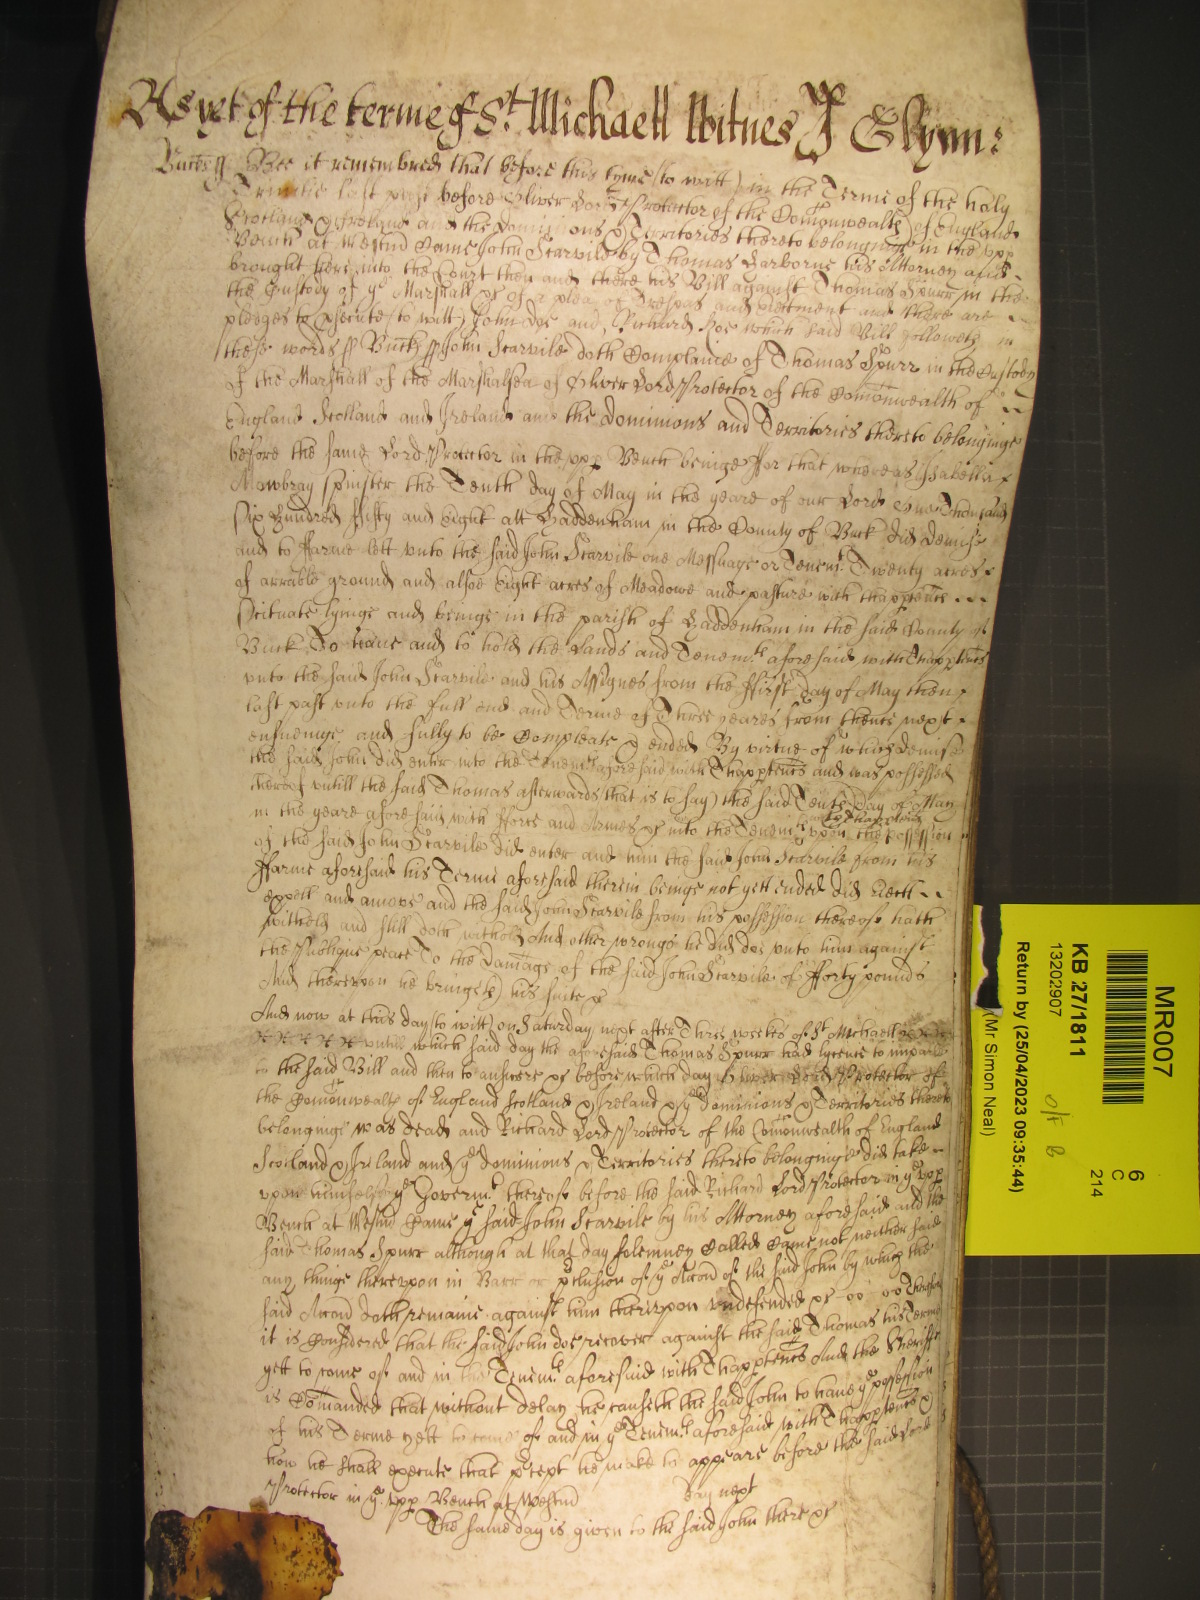 As yet of the terme of St. Michaell Witnes J Glynn:
Bucks ss Bee it remembred that before this tyme (to witt) in the Terme of the holy
Trinitie last past before Oliver Lord Protector of the Comonwealth of England
Scotland & Ireland and the Dominions & Territories thereto belonginge in the upp
Bench at Westmr Came John Scarvile by Thomas Harborne his Attorney and
brought here into the Court then and there his Bill against Thomas Spurr in the
the Custody of ye Marshall &c of a plea of Trespas and eiectment and there are
pledges to psecute (to witt) John Doe and Richard Roe which said Bill followeth in
these words ss Bucks ss John Scarvile doth Complaine of Thomas Spurr in the Custody
of the Marshall of the Marshalsea of Oliver Lord Protector of the Comonwealth of
England Scotland and Ireland and the dominions and Territories thereto belonginge
before the same Lord Protector in the upp Bench beinge For that whereas Isabella
Mowbray spinster the Tenth day of May in the yeare of our Lord One Thousand
Six Hundred Fifty and Eight att Haddenham in the County of Buck did demise
and to Farme lett unto the said John Scarvile one Messuage or Tenemt Twenty acres
of arrable ground and alsoe Eight acres of Meadowe and pasture with thapptences
Scituate lyinge and beinge in the parish of Haddenham in the said County of
Buck To have and to hold the Lands and Tenemts aforesaid with Thapptences
unto the said John Scarvile and his Assignes from the First day of May then
last past unto the full end and Terme of Three yeares from thence next
ensueinge and fully to be Compleate & ended By virtue of which demise
the said John did enter into the Tenemts aforesaid with Thapptences and was possessed
thereof untill the said Thomas afterwards that is to say) the said Tenth day of May
in the yeare aforesaid with Force and Armes &c into the Tenemts upon the possession
of the said John Scarvile did enter and him the said John Scarvile from his
Farme aforesaid his Terme aforesaid therein beinge not yett ended did eiect
expell and amove and the said John Scarvile from his possession thereof hath
witheld and still doth withold And other wrongs he did doe unto him against
the Publique peace To the damage of the said John Scarvile of Forty pounds
And thereupon he bringeth his suite &c
And now at this day (to witt) on Saturday next after Three weekes of St Michaell
untill which said day the aforesaid Thomas Spurr had lycence to imparle
to the said Bill and then to answere &c before which day Oliver Lord Protector of
the Comonwealth of England Scotland & Ireland & ye Dominions & Territories thereto
belonginge was dead and Richard Lord Protector of the Comonwealth of England
Scotland & Ireland and ye dominions & Territories thereto belonginge did take
upon himselfe ye Governmt thereof before the said Richard Lord Protector in ye upp
Bench at Westmr Came ye said John Scarvile by his Attorney aforesaid and the
said Thomas Spurr although at that day solemney Called Came not neither said
any thinge thereupon in Barr or pclusion of ye Accon of the said John by which the
said Accon doth remaine against him thereupon undefended &c Therefore
it is Considered that the said John doe recover against the said Thomas his Terme
yett to come of and in the Tenemts aforesaid with Thapptences And the Sheriffe
is Comanded that without delay he causeth the said John to have ye possession
of his Terme yett to come of and in ye Tenemts aforesaid with Thapptences &
how he shall execute that precept he make to appeare before the said Lord
Protector in ye upp Bench at Westmr day next
The same day is given to the said John there &c
MR007
KB 27/1811
13202907
6
C
214
Return by (25/04/2023 09:35:44)
(Mr Simon Neal)